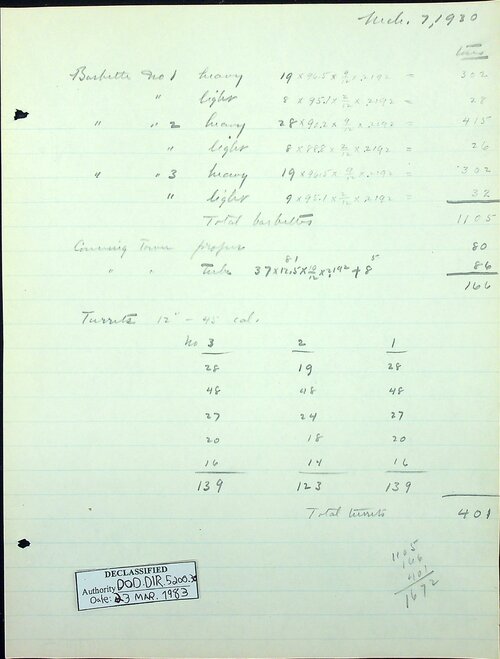 Mch. 7, 1930
tons
Barbette No 1 heavy 19 × 96.5 × 9/12 × .2192 = 302
" light 8 × 95.1 × 2/12 × .2192 = 28
" " 2 heavy 28 × 90.2 × 9/12 × .2192 = 415
" light 8 × 88.8 × 2/12 × .2192 = 26
" " 3 heavy 19 × 96.5 × 9/12 × .2192 = 302
" light 9 × 95.1 × 2/12 × .2192 = 32
Total barbettes 1105
Conning Tower proper 80
81 5
" " tube 37 × 12.5 × 10/12 × .2192 + 8 86
166
Turrets 12" - 45 cal.
No 3 2 1
28 19 28
48 48 48
27 24 27
20 18 20
16 14 16
139 123 139
Total turrets 401
1105
166
401
1672
DECLASSIFIED
Authority DOD.DIR.5200.30
Date: 23 MAR. 1983